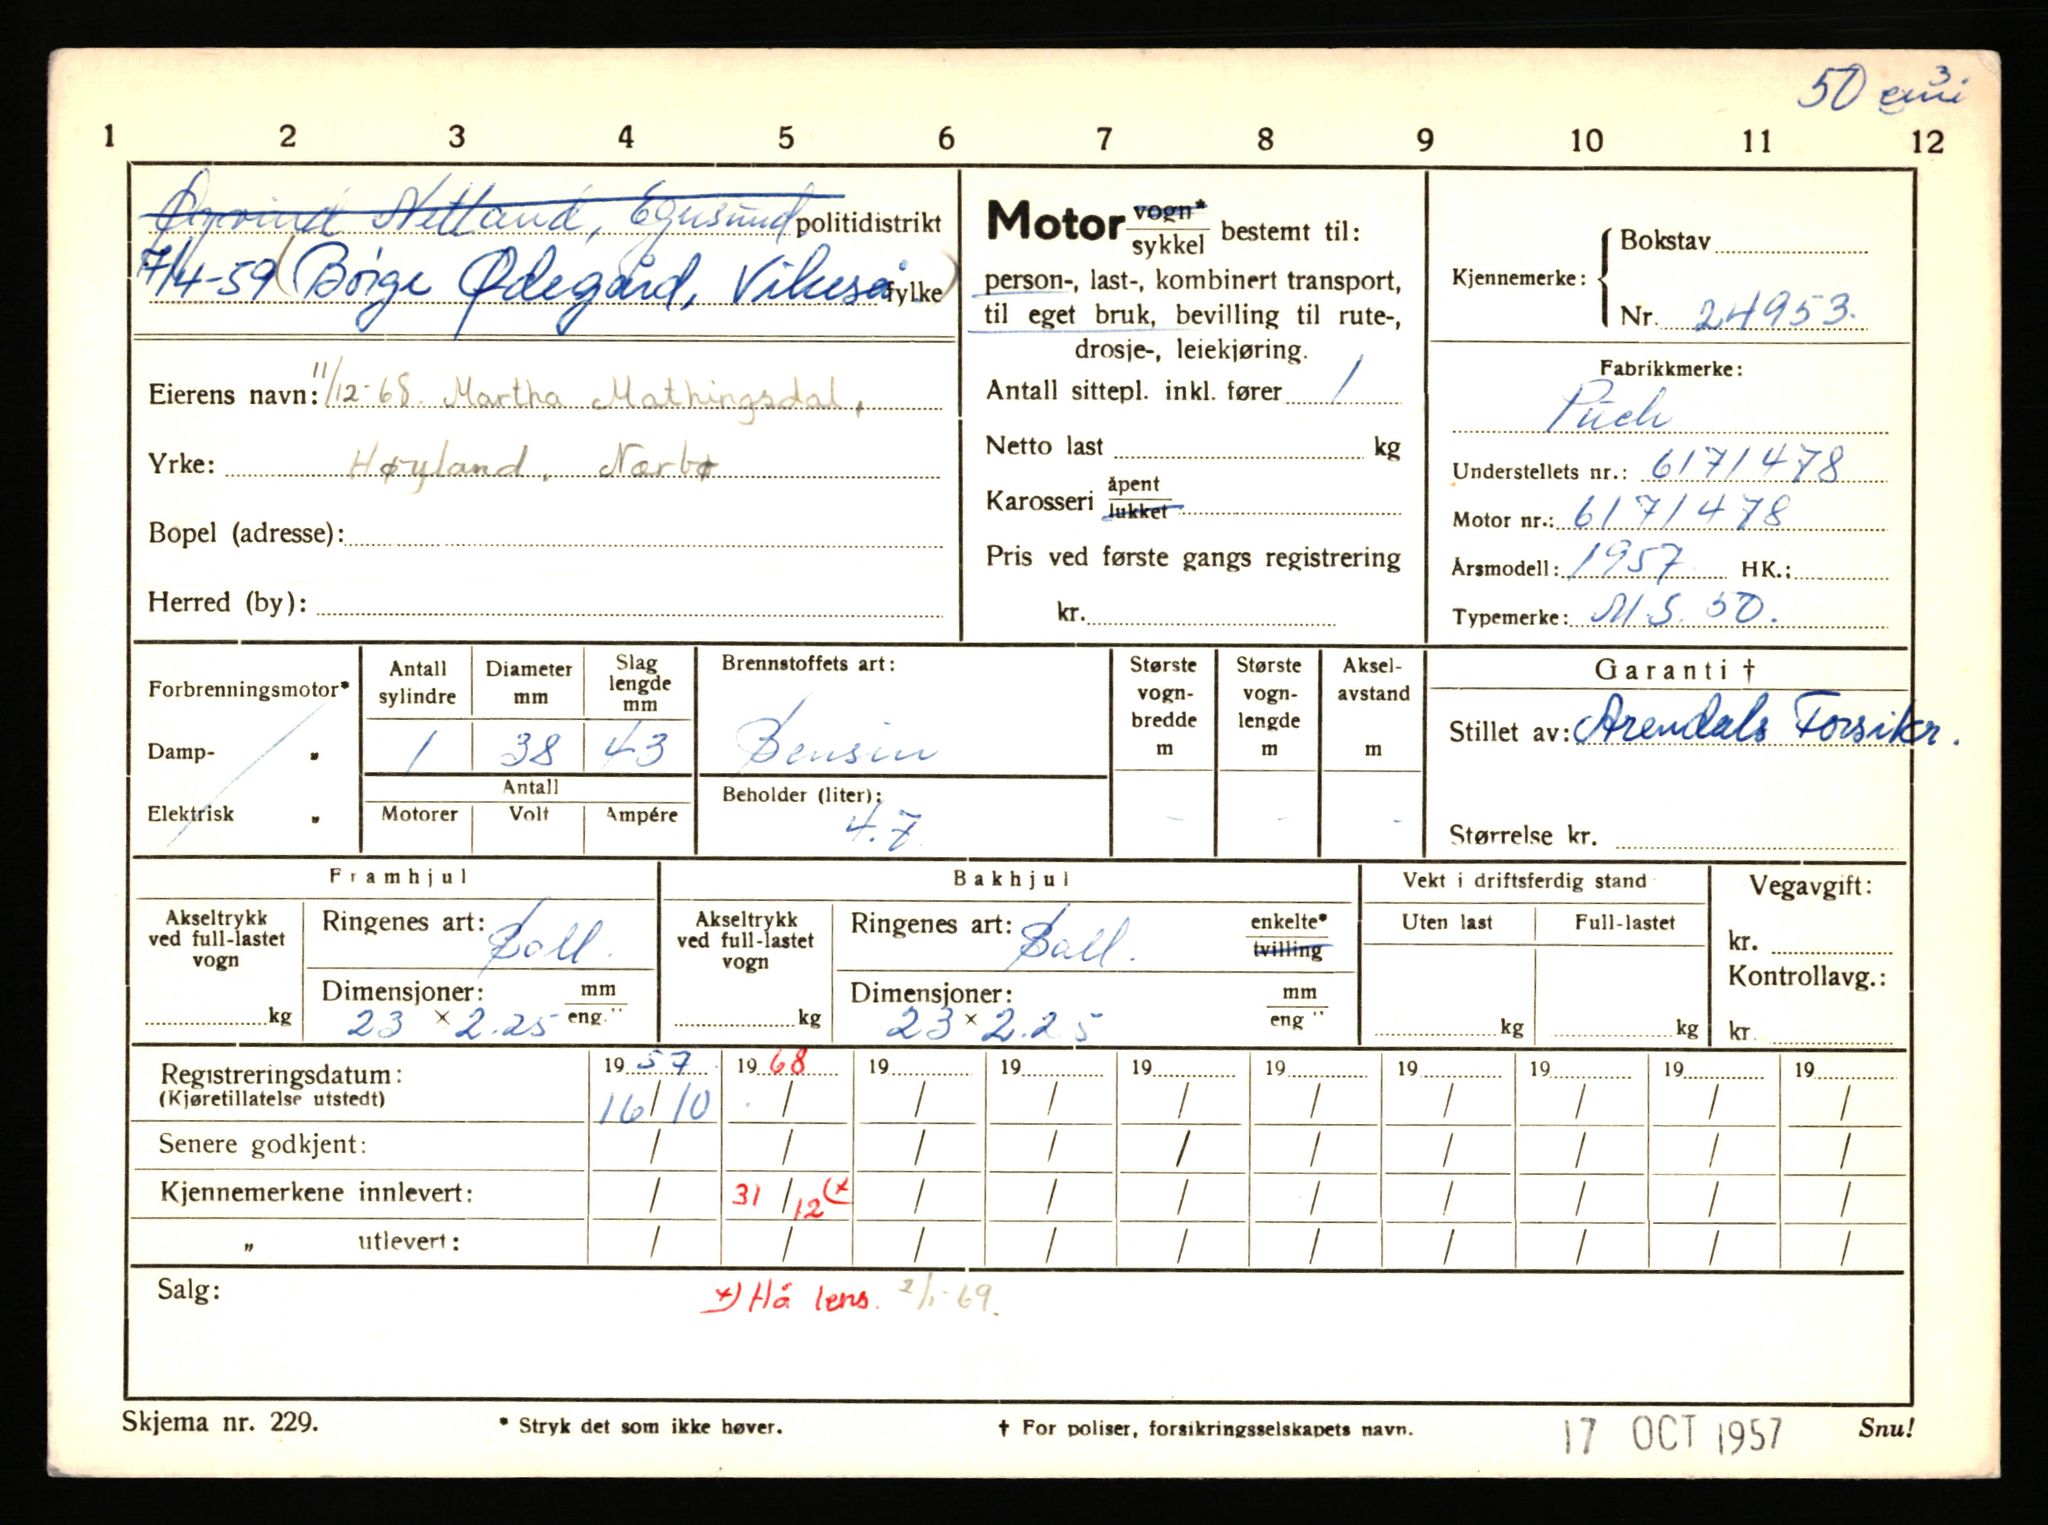 50 cm³
1 2 3 4 5 6 7 8 9 10 11 12
Øyvind Netland, Egersund politidistrikt
7/4-59 (Børge Ødegård, Vikeså fylke)
Eierens navn: 11/12-68. Martha Mathingsdal,
Yrke: Høyland, Nærbø
Bopel (adresse):
Herred (by):
Motor vogn* / sykkel bestemt til:
person-, last-, kombinert transport,
til eget bruk, bevilling til rute-,
drosje-, leiekjøring.
Antall sittepl. inkl. fører 1
Netto last kg
Karosseri åpent / lukket
Pris ved første gangs registrering
kr.
Kjennemerke: Bokstav
Nr. 24953.
Fabrikkmerke:
Puch
Understellets nr.: 6171478
Motor nr.: 6171478
Årsmodell: 1957 HK.:
Typemerke: M.S. 50.
Forbrenningsmotor*
Damp- "
Elektrisk "
Antall sylindre Diameter mm Slag lengde mm
1 38 43
Antall
Motorer Volt Ampére
Brennstoffets art:
Bensin
Beholder (liter):
4.7
Største vogn-bredde m
Største vogn-lengde m
Aksel-avstand m
- - -
Garanti †
Stillet av: Arendals Forsikr.
Størrelse kr.
Framhjul
Akseltrykk ved full-lastet vogn
kg
Ringenes art: Ball.
Dimensjoner: mm / eng."
23 × 2.25
Bakhjul
Akseltrykk ved full-lastet vogn
kg
Ringenes art: Ball. enkelte* / tvilling
Dimensjoner: mm / eng "
23 × 2.25
Vekt i driftsferdig stand
Uten last Full-lastet
kg kg
Vegavgift:
kr.
Kontrollavg.:
kr.
Registreringsdatum: 19 57 19 68 19 19 19 19 19 19 19 19
(Kjøretillatelse utstedt) 16/10 / / / / / / / / /
Senere godkjent: / / / / / / / / / /
Kjennemerkene innlevert: / 31/12 (x / / / / / / / /
" utlevert: / / / / / / / / / /
Salg: x) Hå lens. 2/1-69.
Skjema nr. 229. * Stryk det som ikke høver. † For poliser, forsikringsselskapets navn. 17 OCT 1957 Snu!